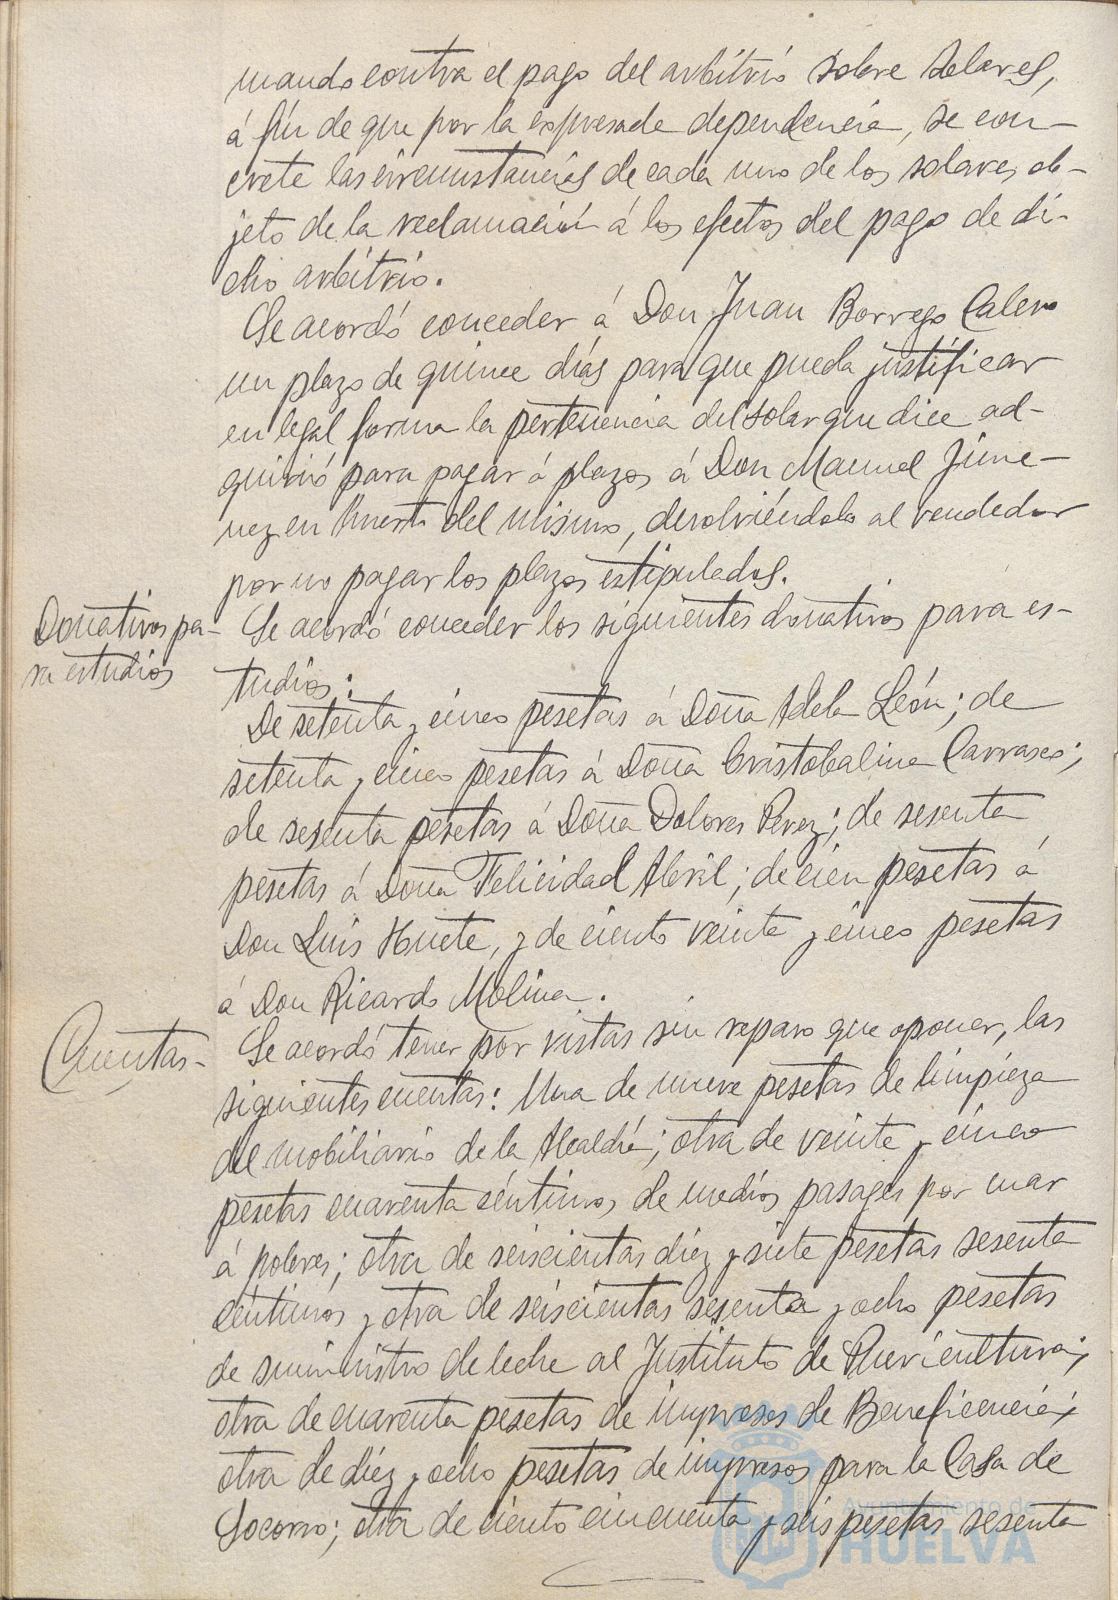 mando contra el pago del arbitrio sobre solares,
á fin de que por la expresada dependencia, se con-
crete las circunstancias de cada uno de los solares ob-
jeto de la reclamación á los efectos del pago de di-
cho arbitrio.
Se acordó conceder á Don Juan Borrego Calero
un plazo de quince días para que pueda justificar
en legal forma la pertenencia del solar que dice ad-
quirió para pagar á plazos á Don Manuel Jime-
nez en del mismo, devolviéndolo al vendedor
por no pagar los plazos estipulados.
Donativos pa-
ra estudios
Se acordó conceder los siguientes donativos para es-
tudios:
De setenta y cinco pesetas á Doña Adela León; de
setenta y cinco pesetas á Doña Cristobalina Carrasco;
de sesenta pesetas á Doña Dolores Perez; de sesenta
pesetas á Doña Felicidad Abril; de cien pesetas á
Don Luis Huete, y de ciento veinte y cinco pesetas
á Don Ricardo Molina.
Cuentas-
Se acordó tener por vistas sin reparo que oponer, las
siguientes cuentas: Una de nueve pesetas de limpieza
del mobiliario de la Alcaldía; otra de veinte y cinco
pesetas cuarenta céntimos de medios pasages por mar
á pobres; otra de seiscientas diez y siete pesetas sesenta
céntimos y otra de seiscientas sesenta y ocho pesetas
de suministro de leche al Instituto de Puericultura;
otra de cuarenta pesetas de impresos de Beneficencia;
otra de diez y ocho pesetas de impresos para la Casa de
Socorro; otra de ciento cincuenta y seis pesetas sesenta
Ayuntamiento de
HUELVA